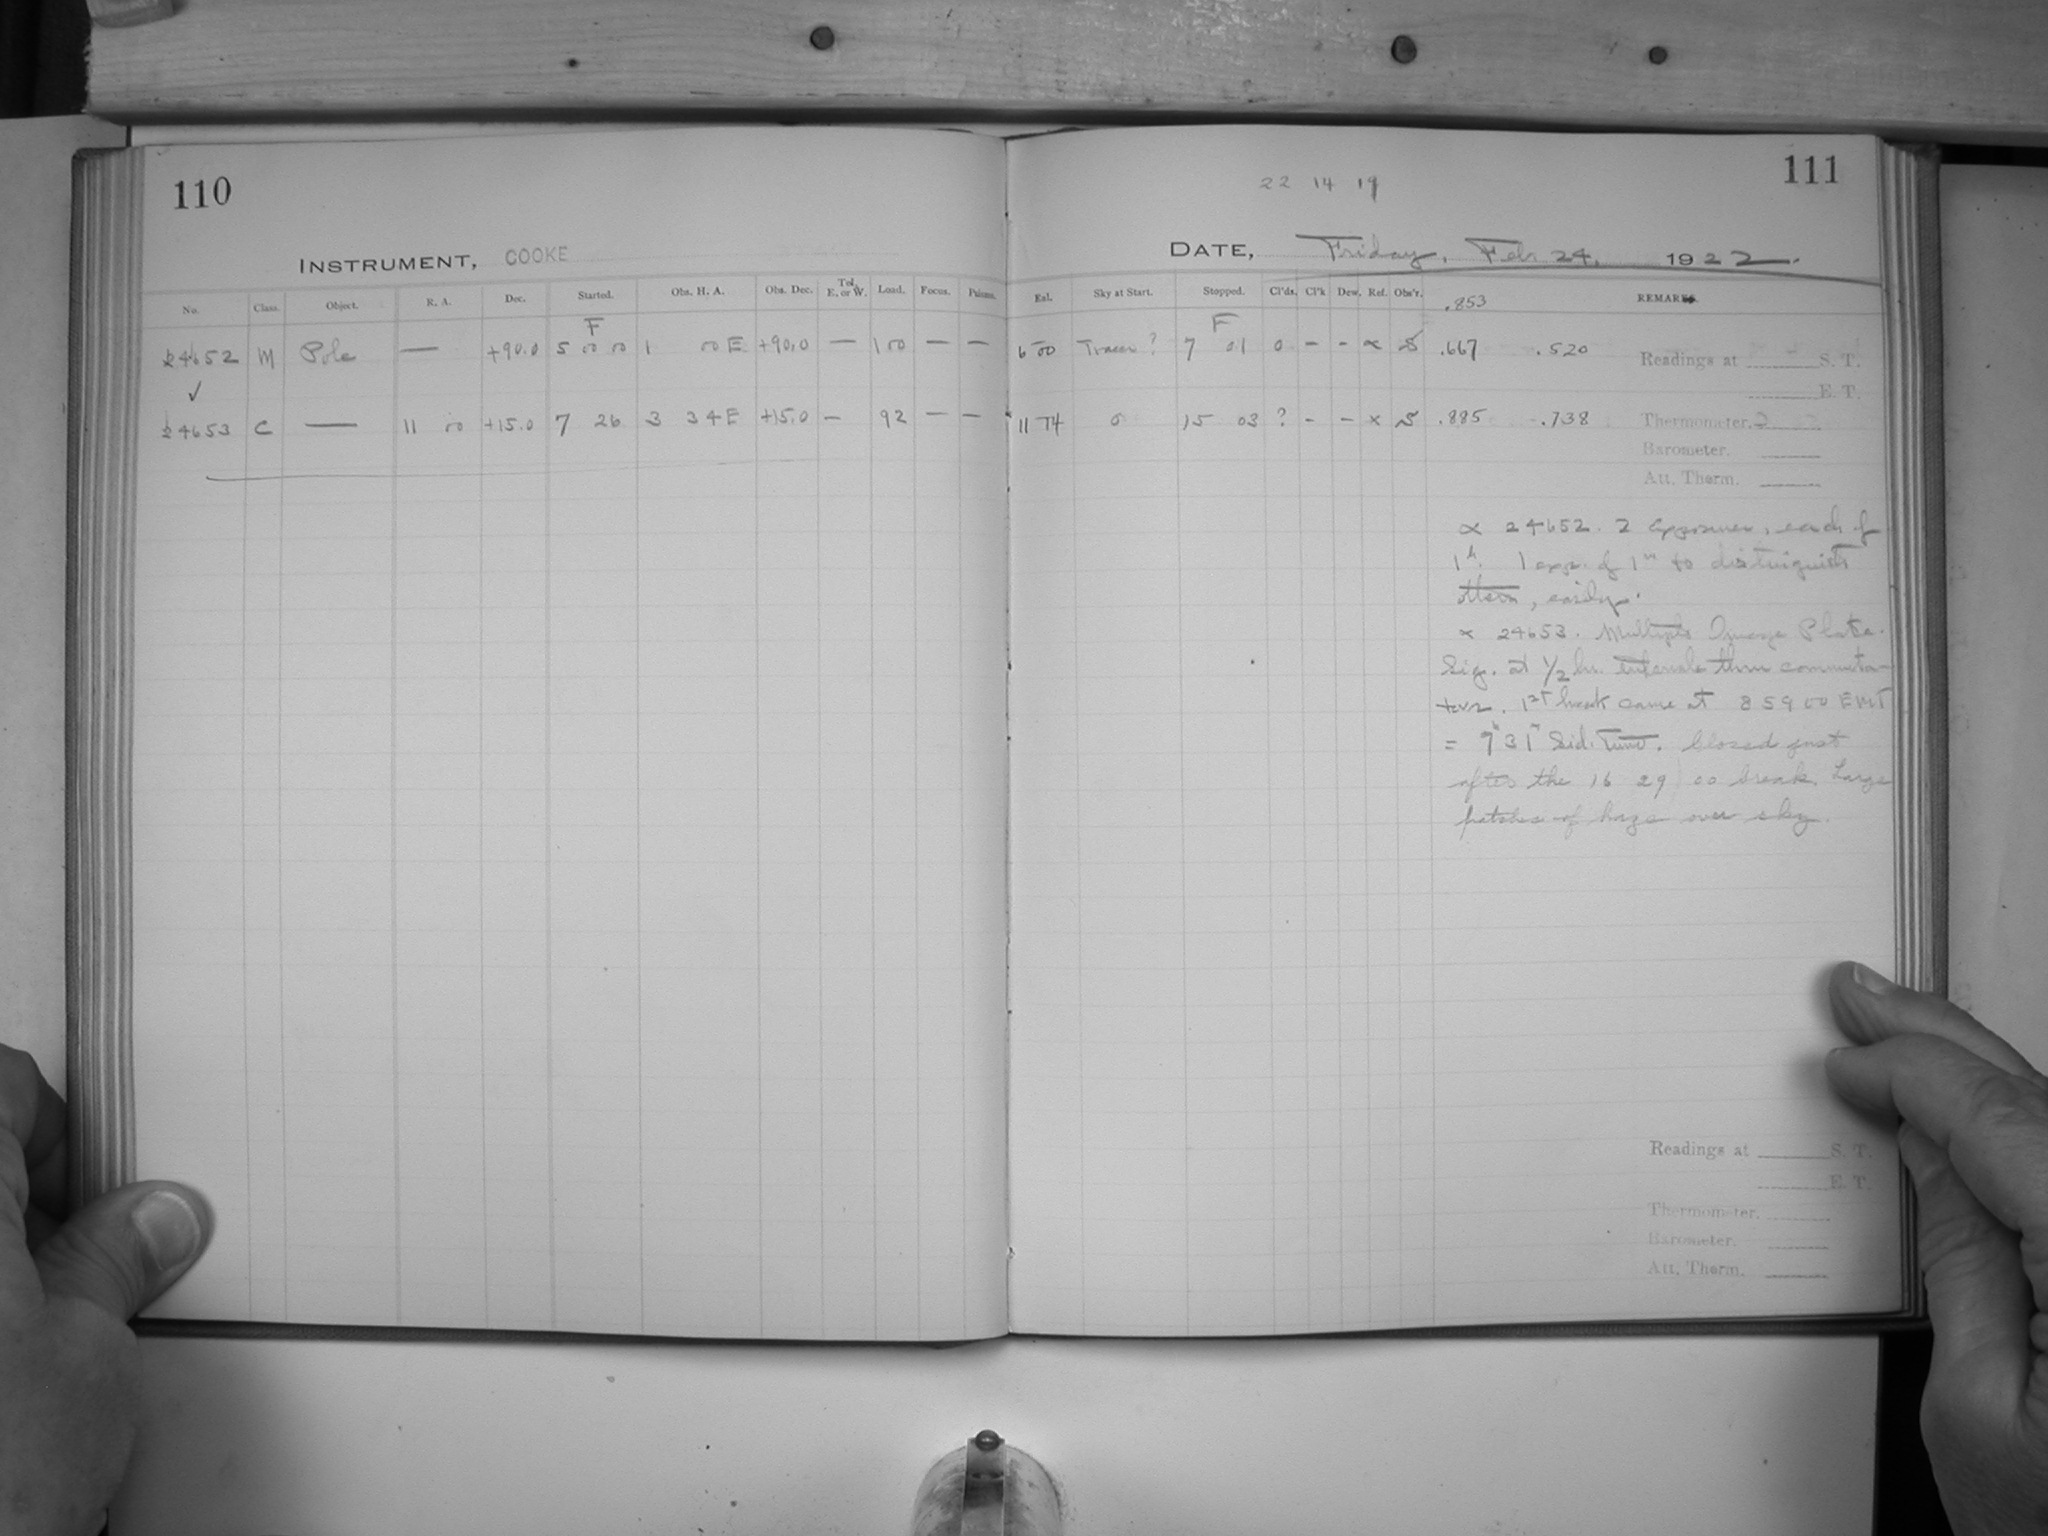 110
INSTRUMENT, COOKE
No. Class. Object. R. A. Dec. Started. Obs. H. A. Obs. Dec. Tel. E. or W. Load. Focus. Prisms.
24652 M Pole — +90.0 5 00 00 F 1 00 E +90.0 — 100 — —
✓
24653 C — 11 00 +15.0 7 26 3 34 E +15.0 — 92 — —
111
22 14 19
DATE, Friday, Feb 24, 1922.
Exl. Sky at Start. Stopped. Cl'ds. Cl'k Dew. Ref. Obs'r. .853 REMARKS.
6 00 Traces ? F 7 01 0 - - × S .667 .520
11 14 0 15 03 ? - - × S .885 .738
Readings at S. T.
E. T.
Thermometer.
Barometer.
Att. Therm.
× 24652. 2 exposures, each of
1h. 1 exp. of 1m to distinguish
them, easily.
× 24653. Multiple Image Plate.
Sig. at 1/2 hr. intervals thru commuta-
tor. 1st break came at 8 59 00 EMT
= 7h 31m Sid. Time. Closed just
after the 16 29 00 break. Large
patches of haze over sky.
Readings at S. T.
E. T.
Thermometer.
Barometer.
Att. Therm.